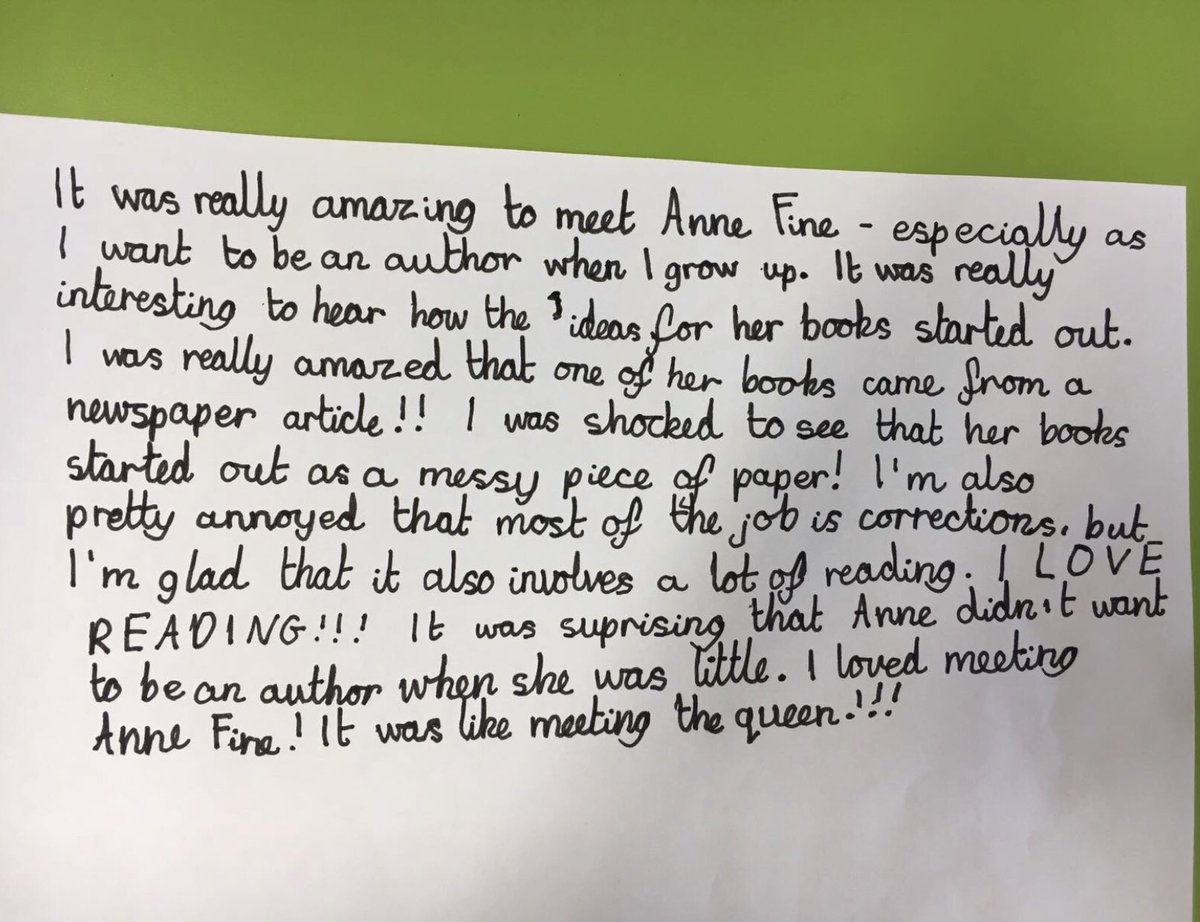 It was really amazing to meet Anne Fine - especially as
I want to be an author when I grow up. It was really
interesting to hear how the ideas for her books started out.
I was really amazed that one of her books came from a
newspaper article!! I was shocked to see that her books
started out as a messy piece of paper! I'm also
pretty annoyed that most of the job is corrections, but
I'm glad that it also involves a lot of reading. I LOVE
READING!!! It was suprising that Anne didn't want
to be an author when she was little. I loved meeting
Anne Fine! It was like meeting the queen!!!